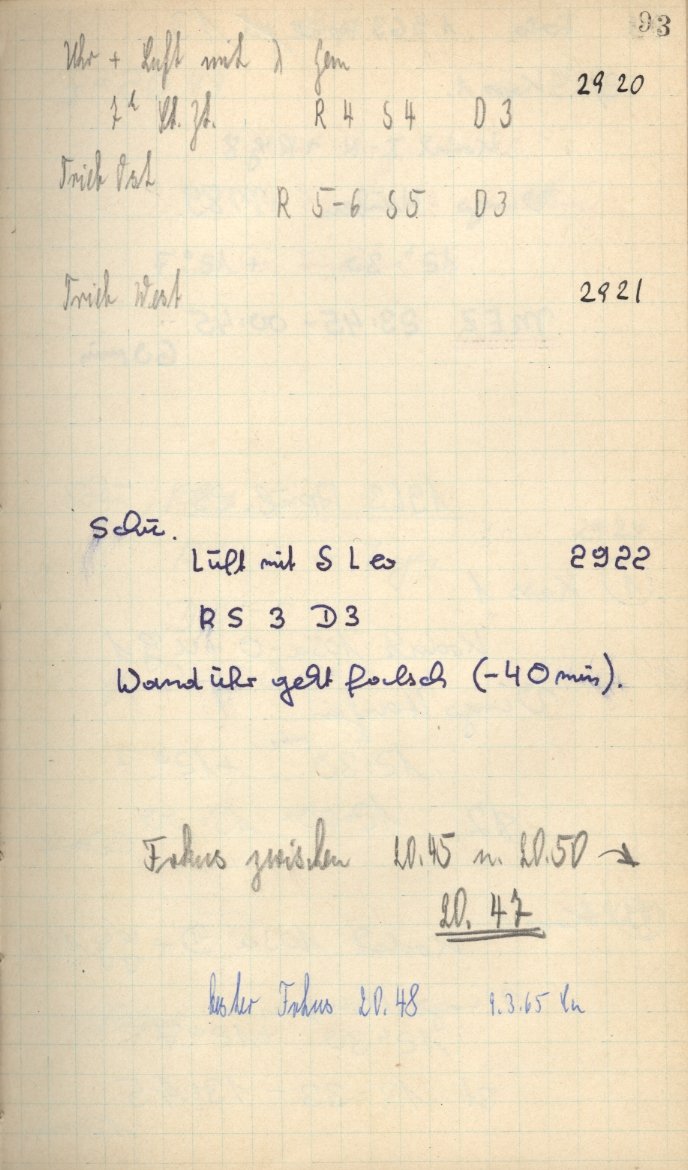 93
Uhr + Luft mit λ Gem 2920
7h St. Zt. R 4 S 4 D 3
Trieb Ost
R 5-6 S5 D3
Trieb West 2921
Schü.
Luft mit S Leo 2922
R S 3 D 3
Wanduhr geht falsch (-40 min).
Fokus zwischen 20.45 u. 20.50
20.47
bester Fokus 20.48 9.3.65